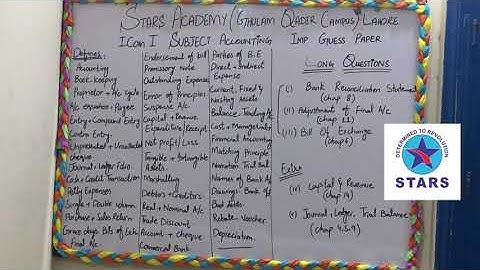 STARS ACADEMY (GHULAM QADER CAMPUS) LAHORE
I COM I SUBJECT ACCOUNTING IMP GUESS PAPER
Defines:
Accounting
Book-Keeping
Proprietor + A/c Cycle
A/c equation + Payee
Entry + Compound Entry
Contra Entry
Unpresented + Uncredited cheque
Journal + Ledger Folio
Cash + Credit Transaction
Petty Expenses
Single + Double column
Purchase + Sales Return
Grace days Bills of Exch.
Final A/c
Endorsement of bill
Promissory Note
Outstanding Expenses
Error of Principles
Suspense A/c
Capital + Revenue
Expenditure + Receipt
Net Profit / Loss
Tangible + Intangible
Assets
Debtors + Creditors
Real + Nominal A/c
Trade Discount
Account + Cheque
Commercial Bank
Parties of B.E
Direct + Indirect
Expense
Current, Fixed &
Wasting Assets
Balance, Trading A/c
Cost + Managerial
Financial Accounting
Matching Principle
Narration Trial Bal
Names of Books of A/c
Drawings
Bad debts
Rebate Voucher
Depreciation
LONG QUESTIONS
(i) Bank Reconciliation Statement
(chap 8)
(ii) Adjustment of Final A/c
(iii) Bill of Exchange
(chap 6)
Extra
(iv) Capital & Revenue
(chap 14)
(v) Journal, Ledger, Trial Balance
(chap 4,5,7)
DETERMINED TO REVOLUTION
STARS